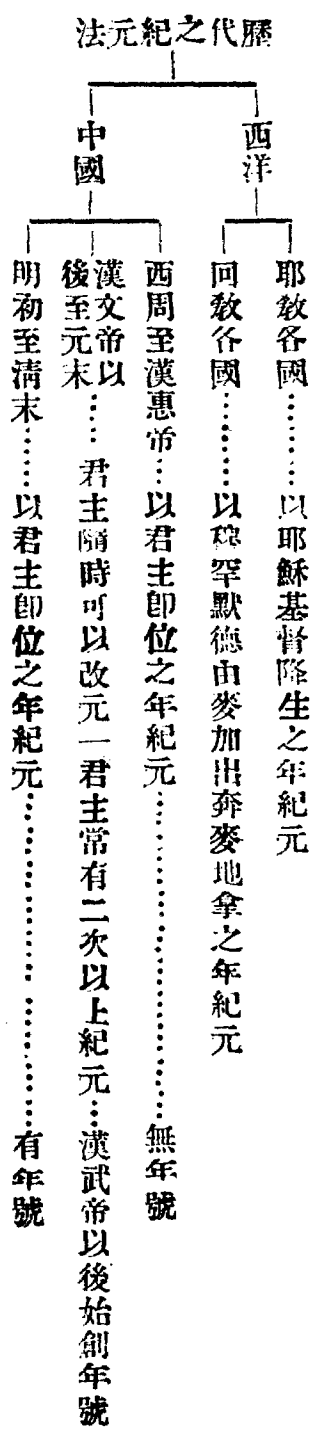 歷代之紀元法
西洋
耶教各國………以耶穌基督降生之年紀元
回教各國………以穆罕默德由麥加出奔麥地拿之年紀元
中國
西周至漢惠帝…以君主卽位之年紀元……………………無年號
漢文帝以
後至元末……君主隨時可以改元一君主常有二次以上紀元…漢武帝以後始創年號
明初至淸末……以君主卽位之年紀元……………………有年號